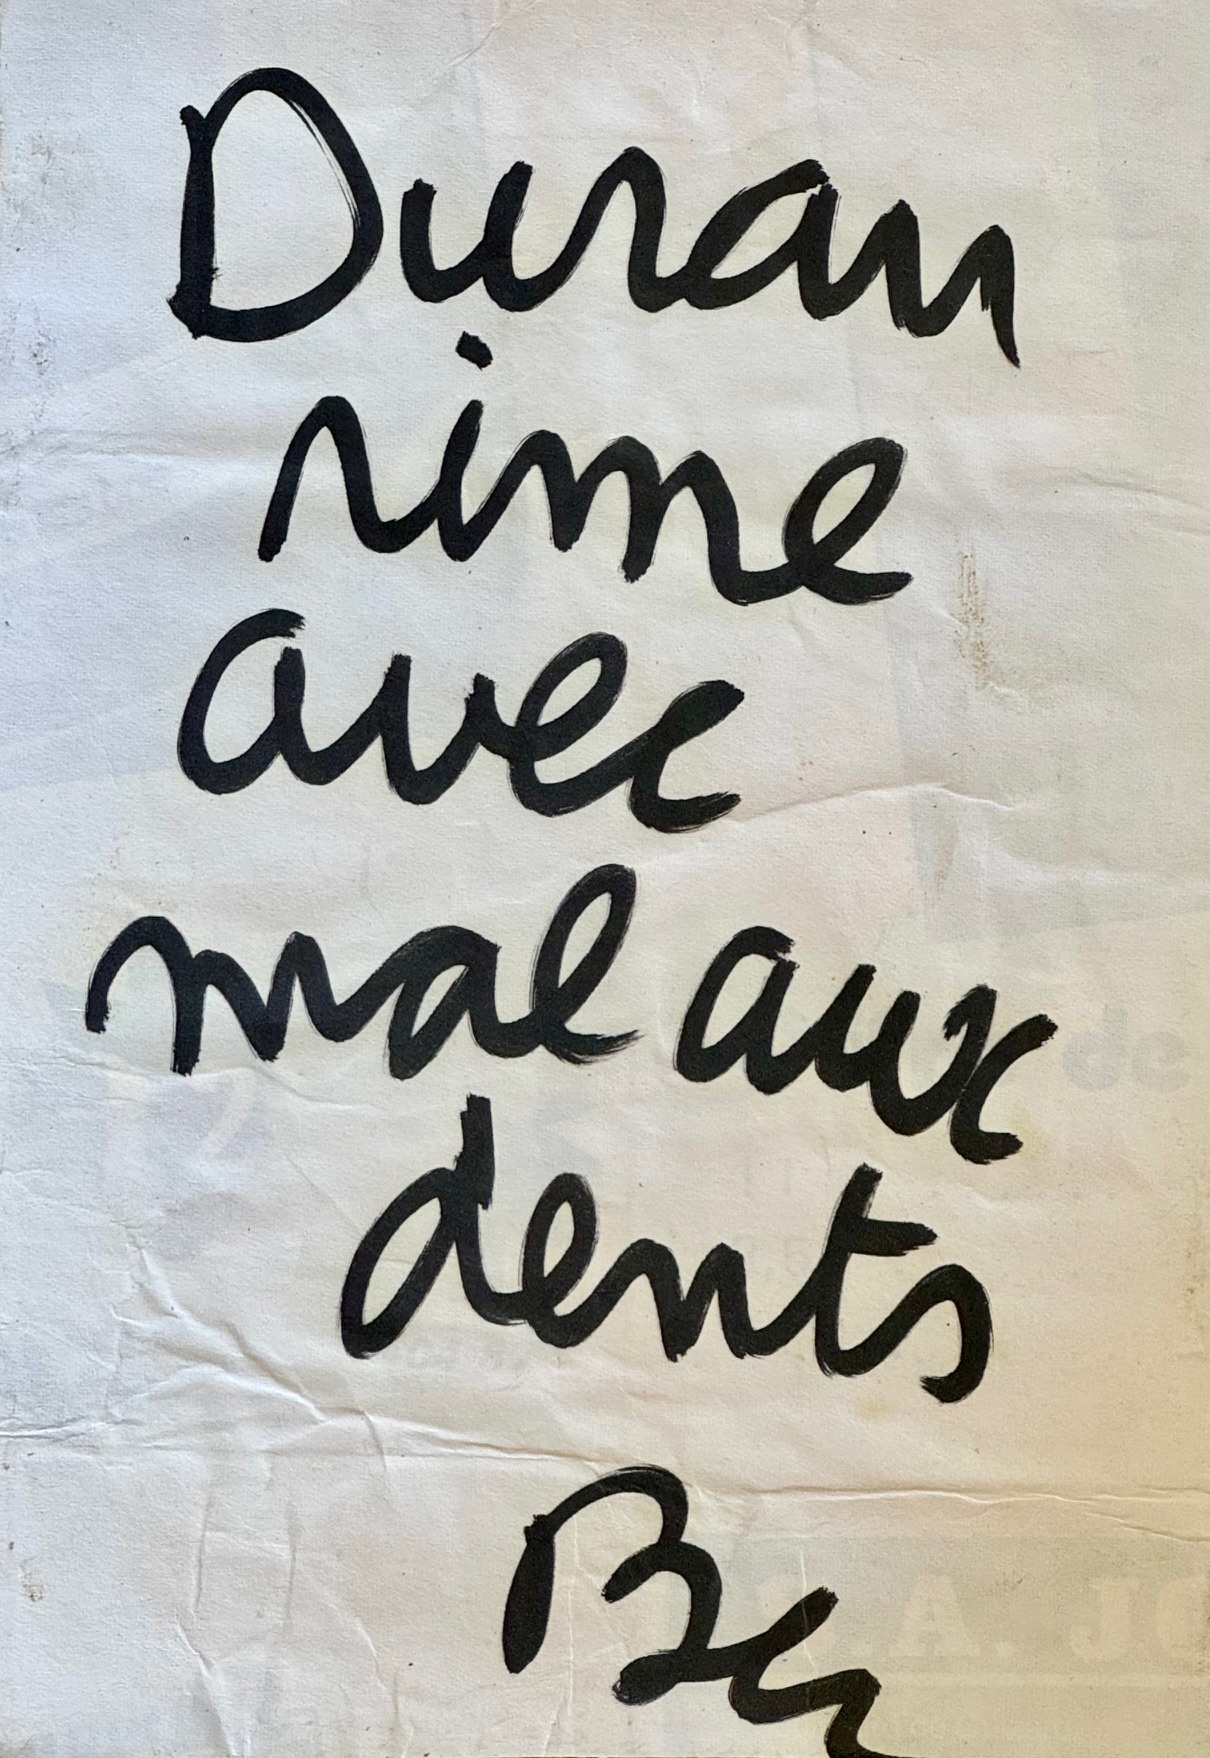 Duran
rime
avec
mal aux
dents
Ben
de
.A. JO